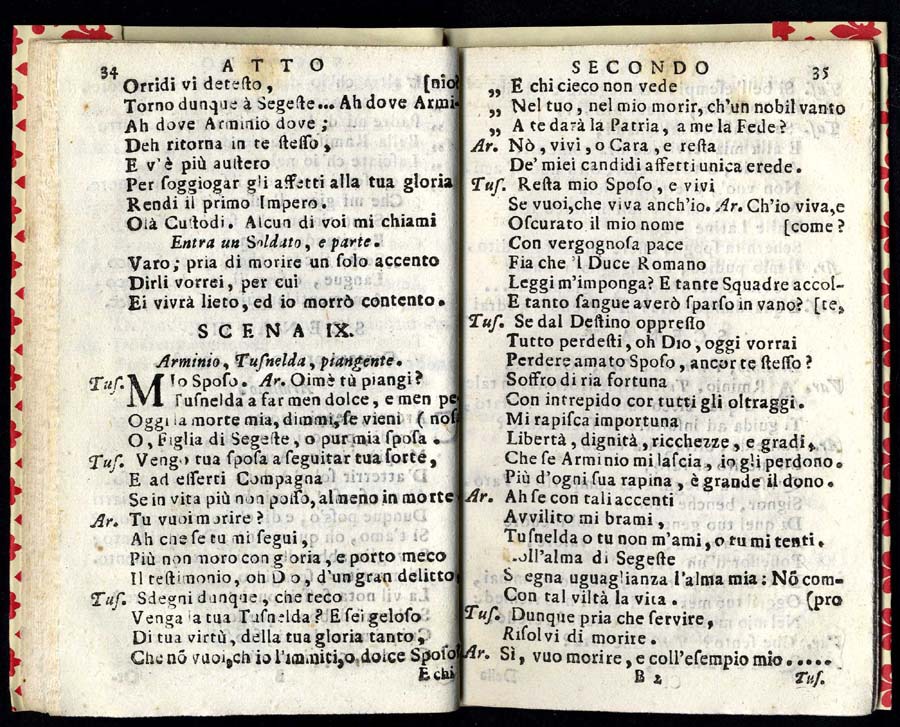 34 ATTO
Orridi vi detesto, [nio?
Torno dunque à Segeste... Ah dove Armi-
Ah dove Arminio dove;
Deh ritorna in te stesso,
E v'è più austero
Per soggiogar gli affetti alla tua gloria
Rendi il primo Impero.
Olà Custodi. Alcun di voi mi chiami
Entra un Soldato, e parte.
Varo; pria di morire un solo accento
Dirli vorrei, per cui
Ei vivrà lieto, ed io morrò contento.
SCENA IX.
Arminio, Tusnelda, piangente.
Tus. MIo Sposo. Ar. Oimè tù piangi?
Tusnelda a far men dolce, e men pe
Oggi la morte mia, dimmi, se vieni (nos
O, Figlia di Segeste, o pur mia sposa.
Tus. Vengo tua sposa a seguitar tua sorte,
E ad esserti Compagna
Se in vita più non posso, almeno in morte
Ar. Tu vuoi morire?
Ah che se tu mi segui,
Più non moro con gloria, e porto meco
Il testimonio, oh Dio, d'un gran delitto
Tus. Sdegni dunque, che teco
Venga la tua Tusnelda? E sei geloso
Di tua virtù, della tua gloria tanto,
Che nõ vuoi, ch'io l'immiti, o dolce Sposo
E chi
SECONDO 35
„ E chi cieco non vede
„ Nel tuo, nel mio morir, ch'un nobil vanto
„ A te darà la Patria, a me la Fede?
Ar. Nò, vivi, o Cara, e resta
De' miei candidi affetti unica erede.
Tus. Resta mio Sposo, e vivi
Se vuoi, che viva anch'io. Ar. Ch'io viva, e
Oscurato il mio nome [come?
Con vergognosa pace
Fia che 'l Duce Romano
Leggi m'imponga? E tante Squadre accol-
E tanto sangue averò sparso in vano? [te,
Tus. Se dal Destino oppresso
Tutto perdesti, oh Dio, oggi vorrai
Perdere amato Sposo, ancor te stesso?
Soffro di ria fortuna
Con intrepido cor tutti gli oltraggi.
Mi rapisca importuna
Libertà, dignità, ricchezze, e gradi,
Che se Arminio mi lascia, io gli perdono.
Più d'ogni sua rapina, è grande il dono.
Ar. Ah se con tali accenti
Avvilito mi brami,
Tusnelda o tu non m'ami, o tu mi tenti.
Coll'alma di Segeste
Sdegna uguaglianza l'alma mia: Nõ com-
Con tal viltà la vita. (pro
Tus. Dunque pria che servire,
Risolvi di morire.
Ar. Sì, vuo morire, e coll'esempio mio.....
B 2 Tus.